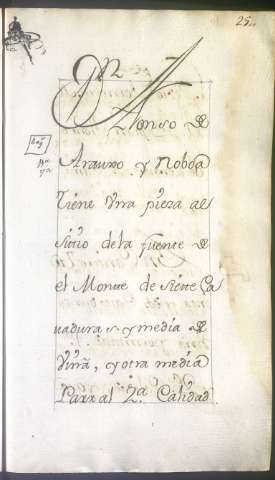 25..
Dn. Alonso de
Arauxo y Noboa
tiene Vna pieza al
sittio de la fuente de
el Monte de siette Ca
uaduras y media de
Viña, y otra media
Parral 2a. Calidad